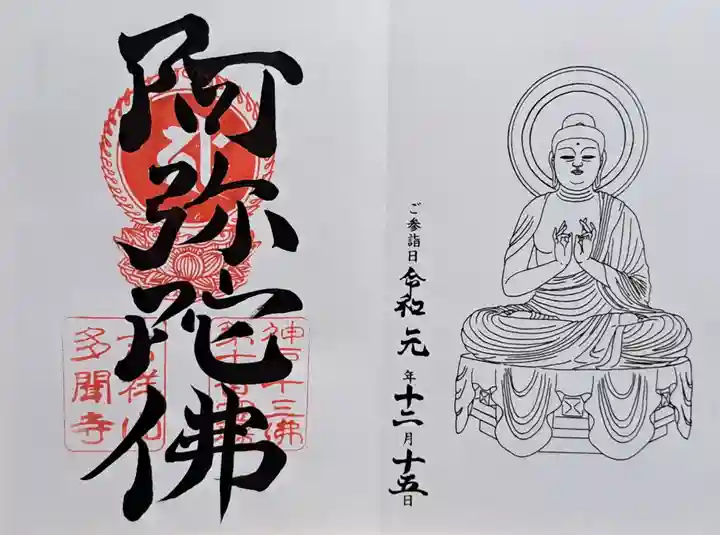 ご参詣日 令和元年十二月十五日
阿弥陀佛
神戸十三佛
吉祥山
多聞寺